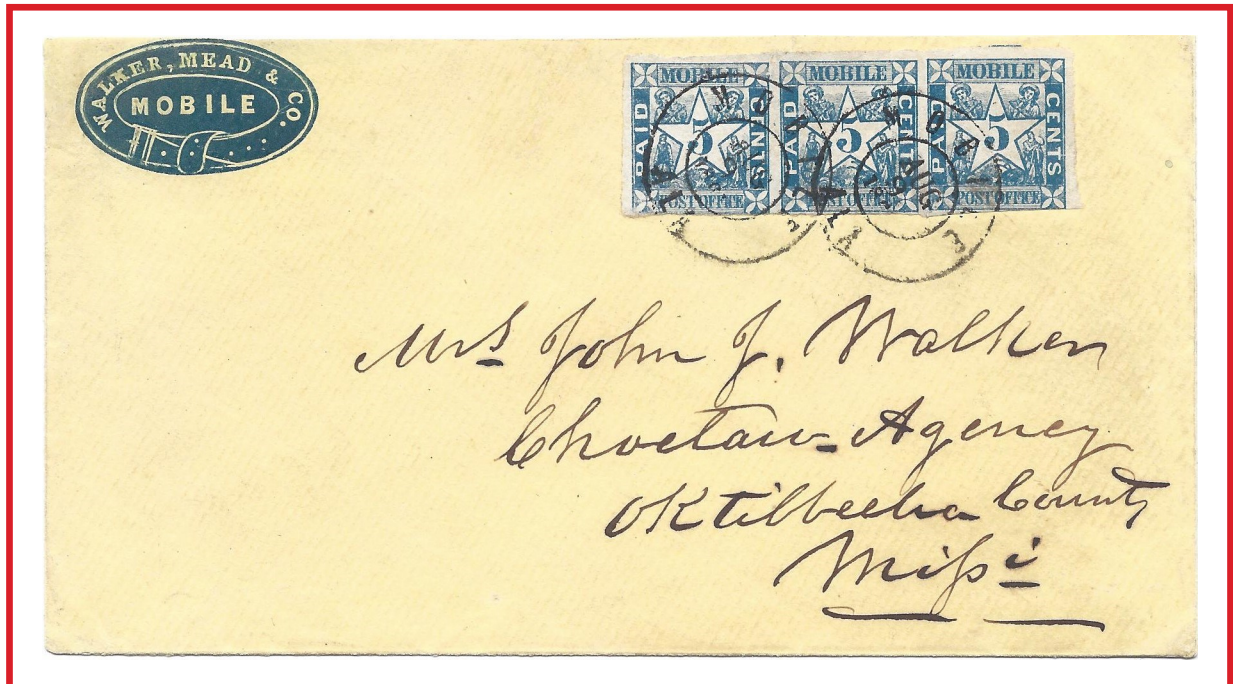 WALKER, MEAD & CO.
MOBILE
MOBILE
PAID
5
CENTS
POST OFFICE
MOBILE
PAID
5
CENTS
POST OFFICE
MOBILE
PAID
5
CENTS
POST OFFICE
MOBILE
ALA
MOBILE
ALA
AUG
Mrs John J. Walker
Choctaw Agency
Oktibbeha County
Missi